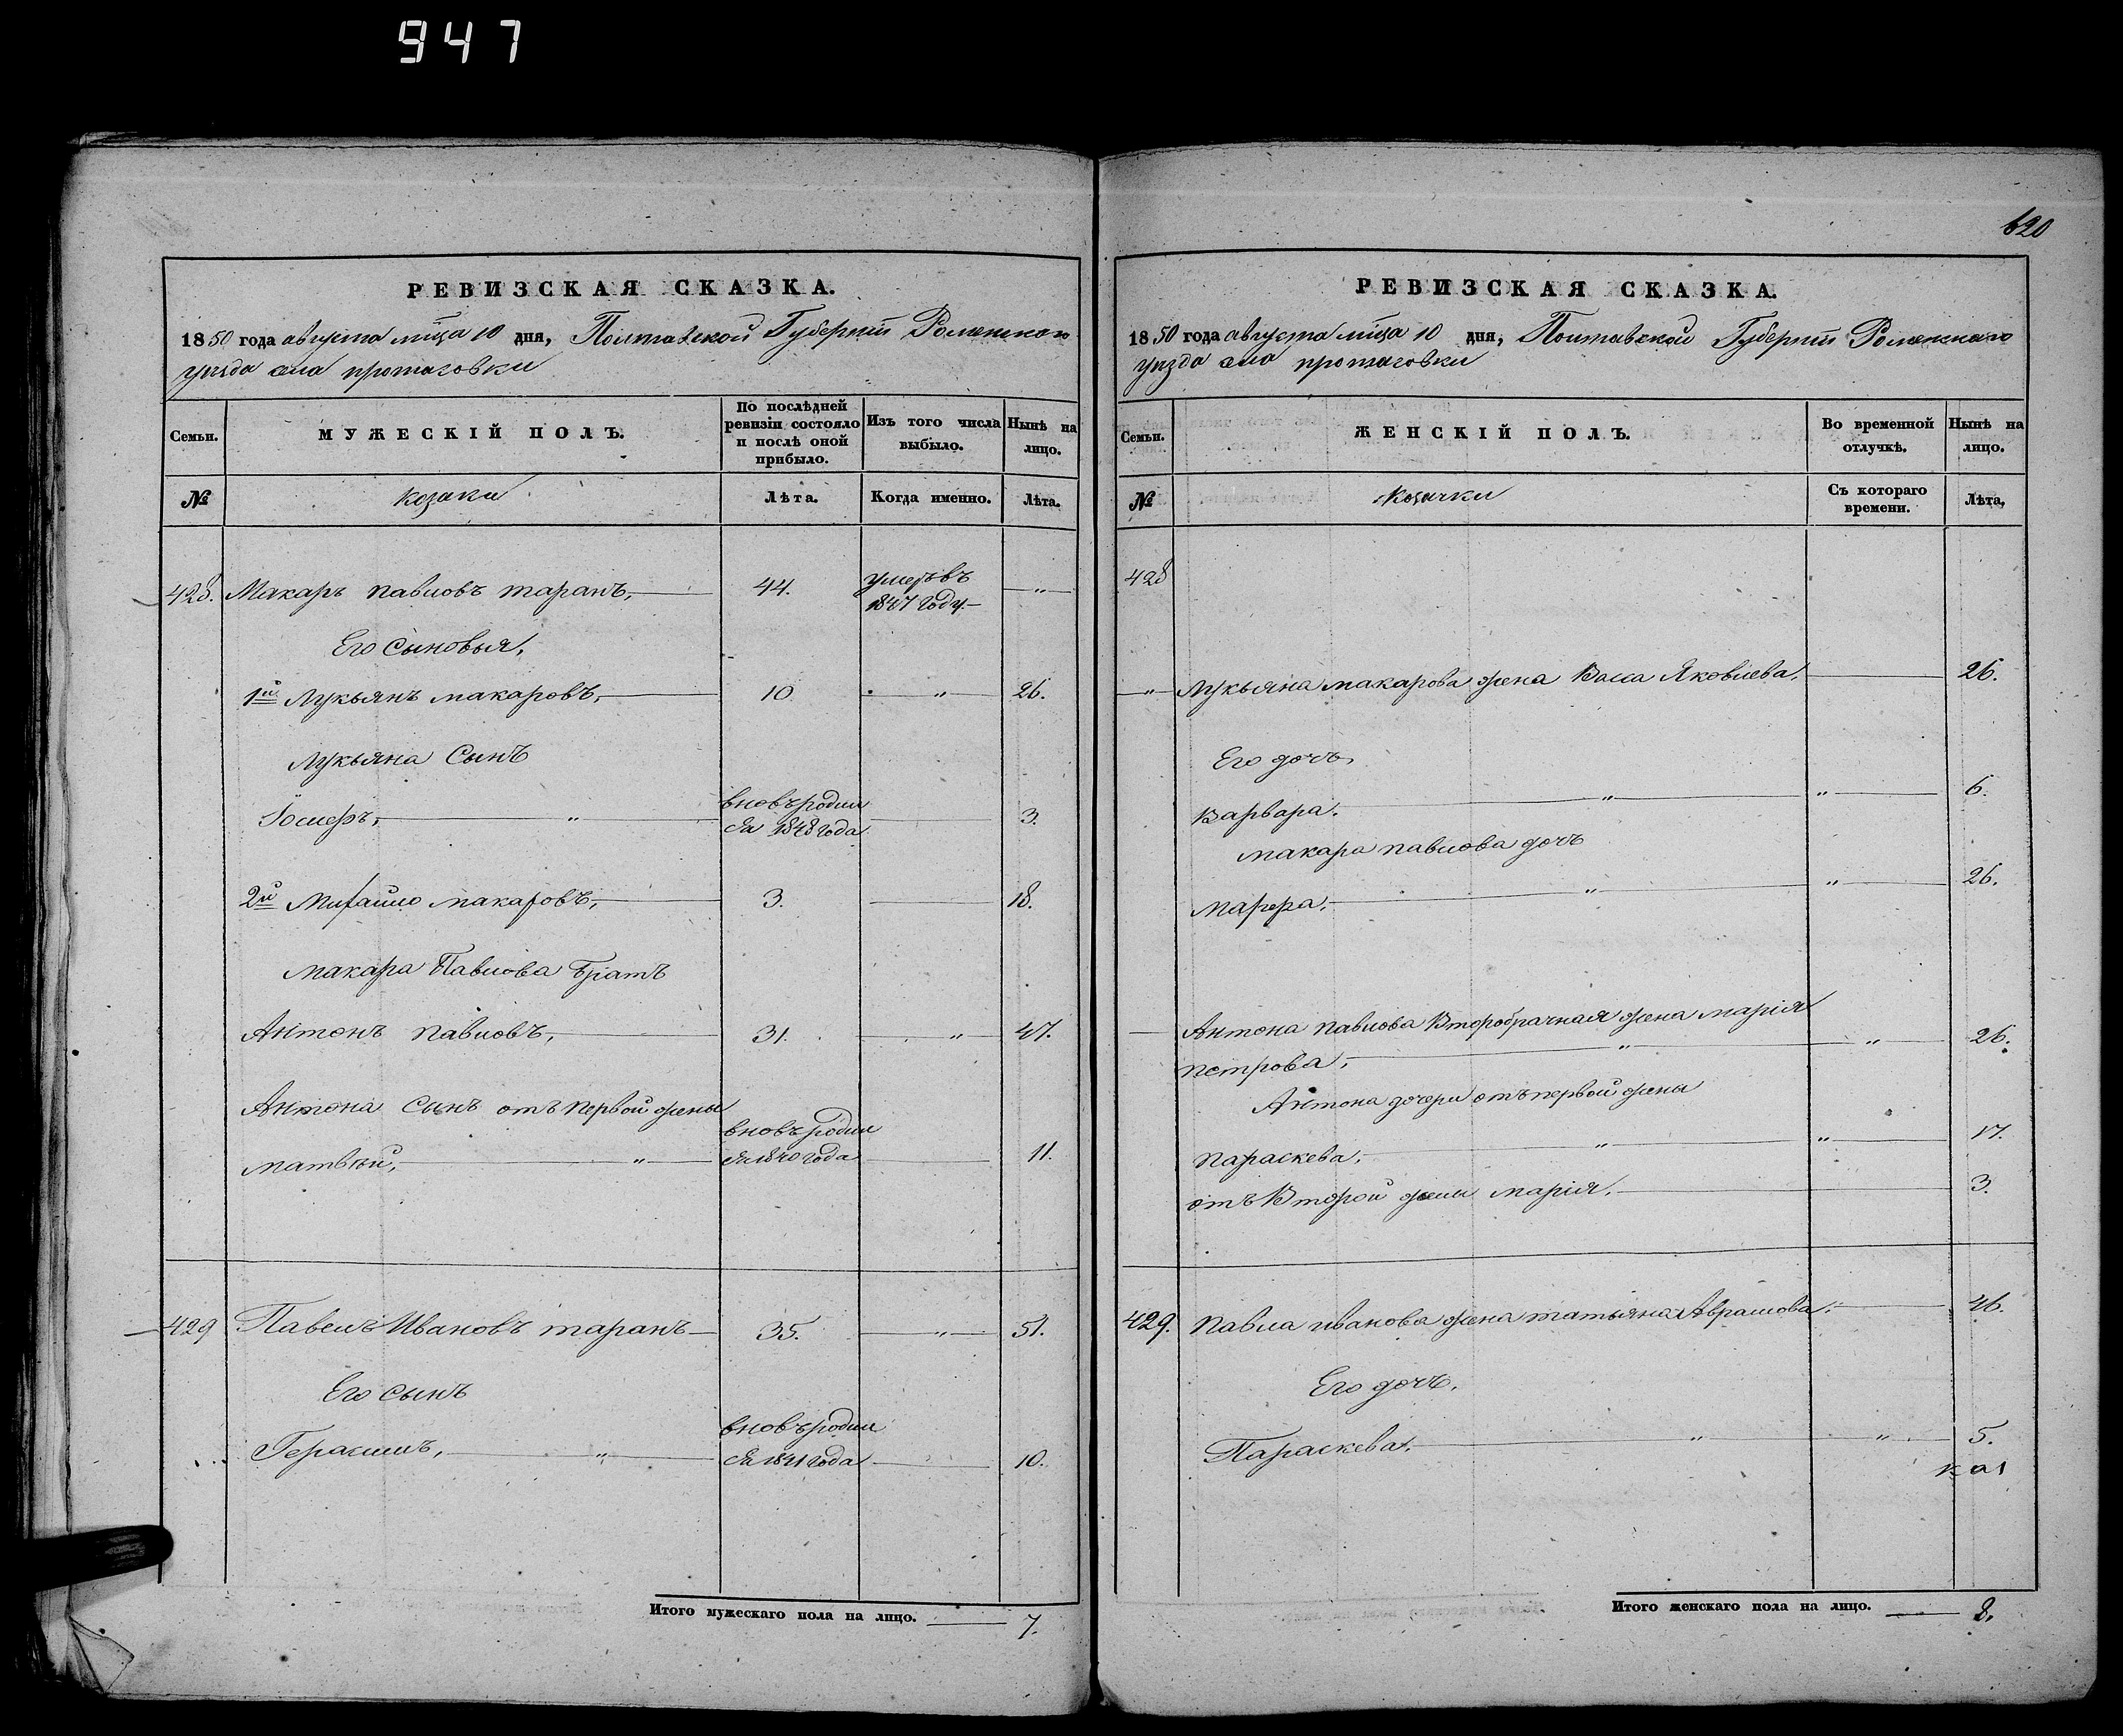 947
РЕВИЗСКАЯ СКАЗКА.
1850 года августа мца 10 дня, Полтавской Губерніи Роменского
уезда села протасовки
Семьи.
МУЖЕСКІЙ ПОЛЪ.
По послѣдней ревизіи состояло и послѣ оной прибыло.
Изъ того числа выбыло.
Нынѣ на лицо.
№
козаки
Лѣта.
Когда именно.
Лѣта.
428. Макаръ павловъ таранъ, 44. умеръ въ 1847 году. "
Его сыновья,
1й Лукьянъ макаровъ, 10 " 26.
Лукьяна Сынъ
вновь родил
ся 1848 года 3.
2й Михайло макаровъ, 3. 18.
Макара Павлова Братъ
Антонъ павловъ, 31. " 47.
Антона Сынъ отъ первой жены
вновь родил
Матвѣй, " ся 1840 года 11.
429 Павелъ Ивановъ таранъ 35. " 51.
Его сынъ
вновь родил
Герасимъ, " ся 1841 года 10.
Итого мужескаго пола на лицо. 7.
620
РЕВИЗСКАЯ СКАЗКА.
1850 года августа мца 10 дня, Полтавской Губерніи Роменскаго
уезда села протасовки
Семьи.
ЖЕНСКІЙ ПОЛЪ.
Во временной отлучкѣ.
Нынѣ на лицо.
№
козачки
Съ котораго времени.
Лѣта,
428
" Лукьяна макарова жена Васа Яковлева, 26.
Его дочь,
Варвара. " " 6.
макара павлова дочь
" " 26.
Антона павлова Второбрачная жена марія
петрова, " " 26.
Антона дочери отъ первой жены
параскева, " " 17.
отъ Второй жены марія. 3.
429. Павла иванова жена татьяна Аврамова. 46.
Его дочь.
Параскева. " " 5.
Итого женскаго пола на лицо. 8.